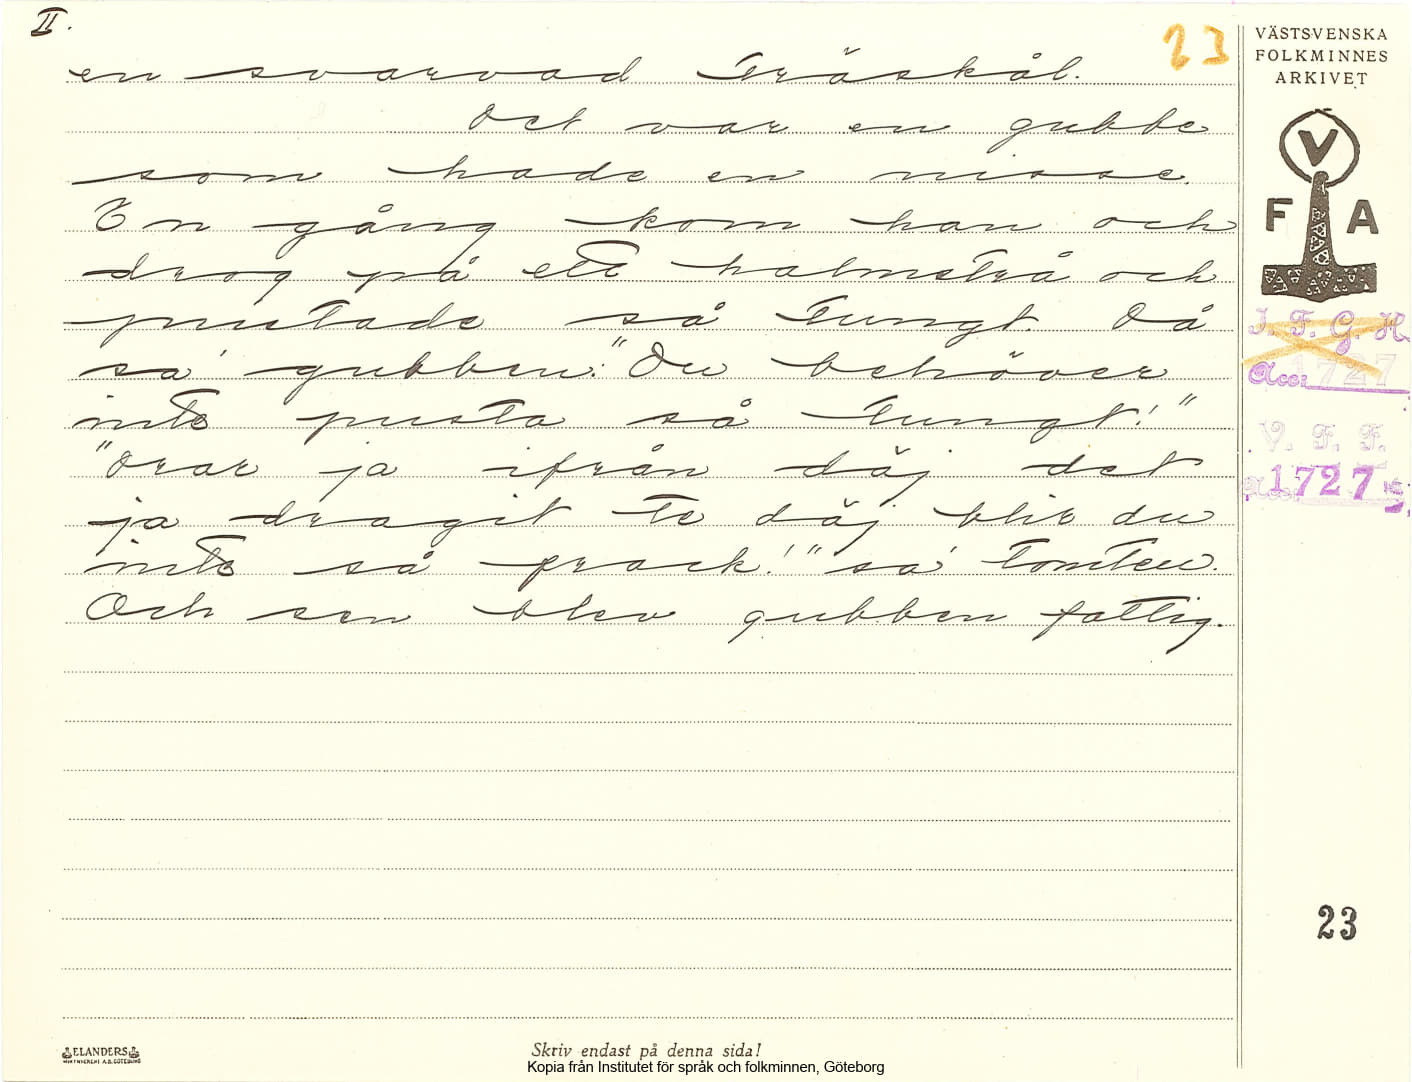 II.
23
VÄSTSVENSKA
FOLKMINNES
ARKIVET
V
F A
en svarvad träskål.
Det var en gubbe
som hade en nisse.
En gång kom han och
drog på ett halmstrå och
pustade så tungt. Då
sa' gubben: "Du behöver
inte pusta så tungt!"
"Drar ja ifrån däj det
ja dragit te däj blir du
inte så prack!" sa' tomten.
Och sen blev gubben fattig.
I. F. G. H.
Acc: 1727
V. F. F.
Acc. 1727
23
ELANDERS
Skriv endast på denna sida!
Kopia från Institutet för språk och folkminnen, Göteborg